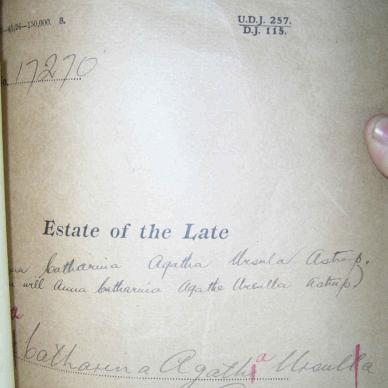 —150,000. S.
U.D.J. 257.
D.J. 115.
No. 17270
Estate of the Late
Catharina Agatha Ursula Astrup.
will Anna Catharina Agathe Ursulla Astrup)
a
Catharina Agatha Ursulla